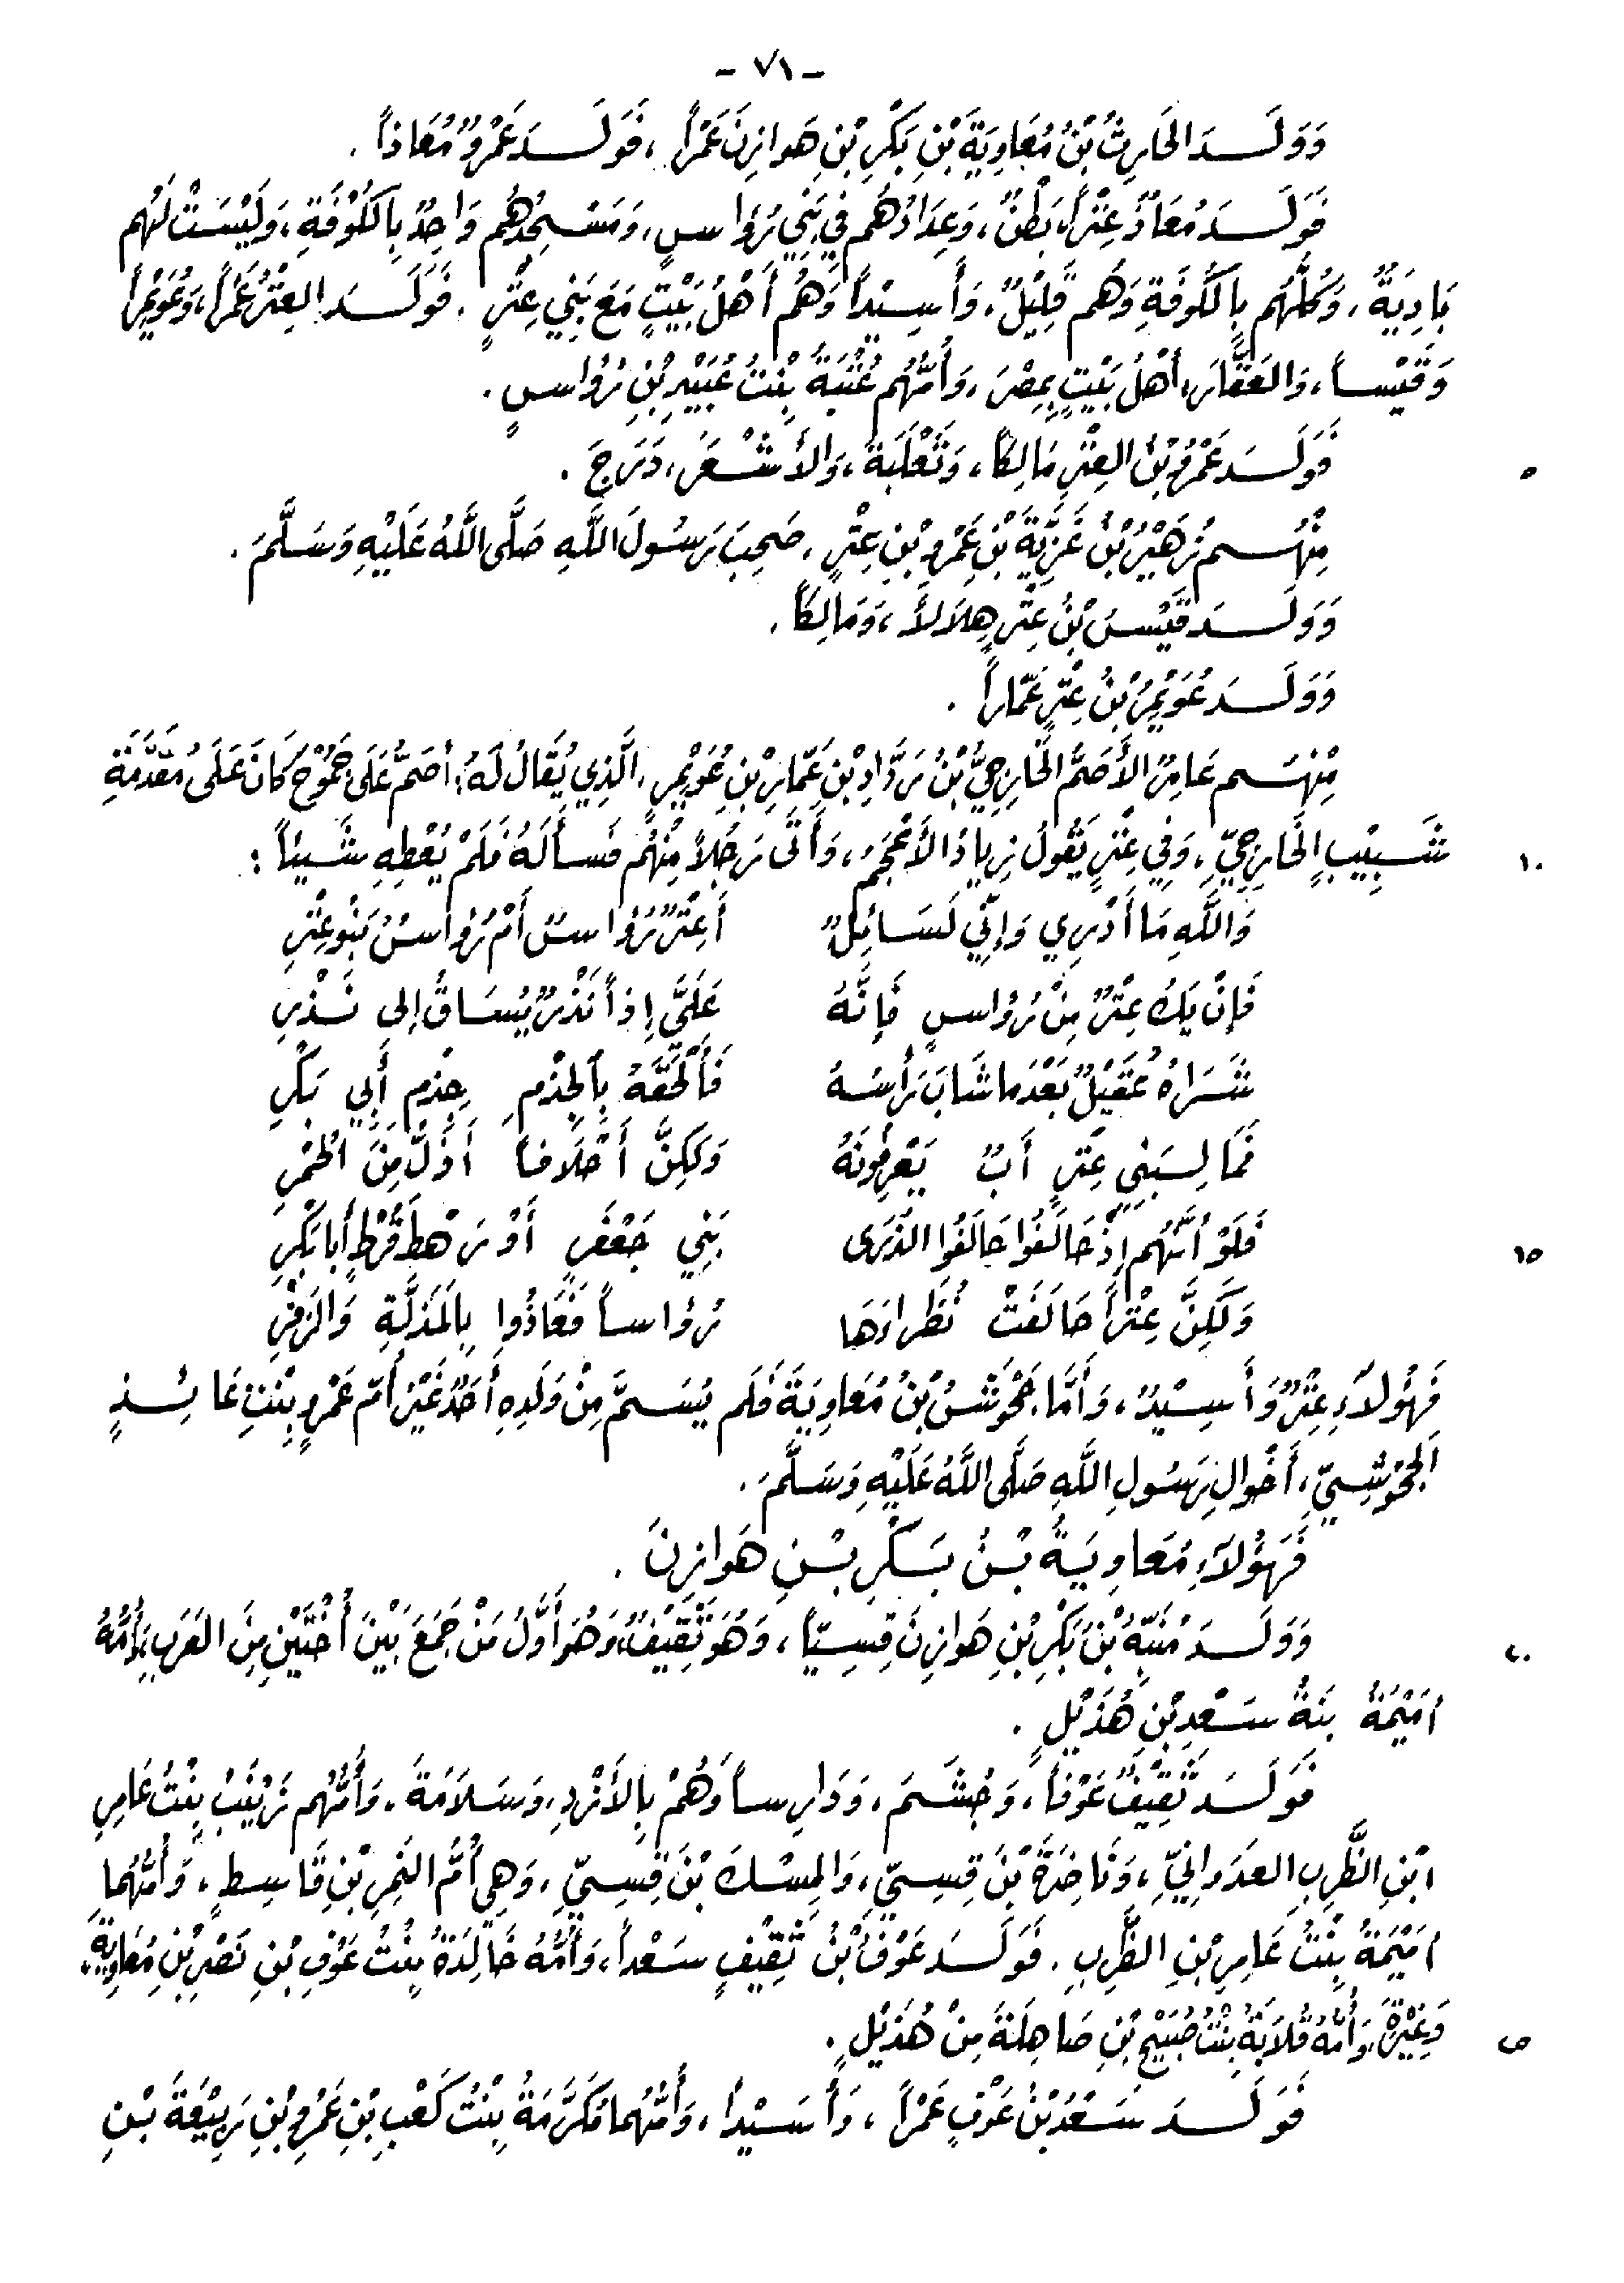 - ٧١ -
وَوَلَــدَ الحَارِثُ بْنُ مُعَاوِيَةَ بْنِ بَكْرِ بْنِ هَوازِنَ عَمْراً ، فَوَلَــدَ عَمْرٌو مُعَاذاً .
فَوَلَــدَ مُعَاذٌ عِتْراً ، بَطْنٌ ، وَعِدَادُهُم فِي بَنِي رُؤاسٍ ، وَمَسْجِدُهُم وَاحِدٌ بِالكُوْفَةِ ، وَلَيْسَتْ لَهُم
بَادِيَةٌ ، وَكُلُّهُم بِالكُوفَةِ وَهُم قَلِيْلٌ ، وَأَسِيْداً وَهُم أَهْلُ بَيْتٍ مَعَ بَنِي عِتْرٍ . فَوَلَــدَ العِتْرُ عَمْراً ، وَعُوَيْمِراً
وَقَيْساً ، وَالعَقَّارَ ، أَهْلُ بَيْتٍ بِمِصْرَ ، وَأُمُّهُم عُتْبَةُ بِنْتُ عُبَيْدِ بْنِ رُؤاسٍ .
٥ فَوَلَــدَ عَمْرُو بْنُ العِتْرِ مَالِكاً ، وَثَعْلَبَةَ ، وَالأَشْعَرَ ، دَرَجَ .
مِنْهُــم زُهَيْرُ بْنُ غَزِيَّةَ بْنِ عَمْرِو بْنِ عِتْرٍ ، صَحِبَ رَسُولَ اللَّهِ صَلَّى اللَّهُ عَلَيْهِ وَسَلَّمَ .
وَوَلَــدَ قَيْسُ بْنُ عِتْرٍ هِلَالاً ، وَمَالِكاً .
وَوَلَــدَ عُوَيْمِرُ بْنُ عِتْرٍ عَمَّاراً .
مِنْهُــم عَامِرٌ الأَصَمُّ الخَارِجِيُّ بْنُ رَدَّادِ بْنِ عَمَّارِ بْنِ عُوَيْمِرٍ ، الَّذِي يُقَالُ لَهُ : أَصَمُّ عَلَى جَمُوْحٍ كَانَ عَلَى مُقَدَّمَةِ
١٠ شَبِيْبٍ الخَارِجِيِّ ، وَفِي عِتْرٍ يَقُولُ زِيادٌ الأَعْجَمُ ، وَأَتَى رَجُلاً مِنْهُم فَسأَلَهُ فَلَمْ يُعْطِهِ شَيْئاً :
وَاللَّهِ مَا أَدْرِي وَإِنِّي لَسَائِلٌ أَعِتْرٌ رُؤاسٌ أَمْ رُؤاسٌ بَنُو عِتْرِ
فَإِنْ يَكُ عِتْرٌ مِنْ رُؤاسٍ فَإِنَّهُ عَلَيَّ إِذاً نَذْرٌ يُسَاقُ إِلى نَذْرِ
شَرَاهُ عُقَيْلٌ بَعْدَمَا شَابَ رَأْسُهُ فَأَلْحَقَهُ بِالجِذْمِ جِذْمِ أَبِي بَكْرِ
فَمَا لِبَنِي عِتْرٍ أَبٌ يَعْرِفُونَهُ وَلَكِنَّ أَحْلَافاً أَذَلُّ مِنَ الحُمْرِ
١٥ فَلَوْ أَنَّهُم إِذْ حَالَفُوا حَالَفُوا الذُّرَى بَنِي جَعْفَرٍ أَوْ رَهْطَ قُرْطٍ أَبا بَكْرِ
وَلَكِنَّ عِتْراً حَالَفَتْ نُظَراءَهَا رُؤاساً فَعَاذُوا بِالمَذَلَّةِ وَالزَفْرِ
فَهَؤُلَاءِ عِتْرٌ وَأَسِيْدٌ ، وَأَمَّا جَحْوَشُ بْنُ مُعَاوِيَةَ فَلَم يُسَمَّ مِنْ وَلَدِهِ أَحَدٌ غَيْرَ أُمِّ عَمْرٍو بِنْتِ عَائِذٍ
الجَحْوَشِيِّ ، أَخْوالِ رَسُولِ اللَّهِ صَلَّى اللَّهُ عَلَيْهِ وَسَلَّمَ .
فَهَؤُلَاءِ مُعَاوِيَةُ بْنُ بَكْرِ بْنِ هَوازِنَ .
٢٠ وَوَلَــدَ مُنَبِّهُ بْنُ بَكْرِ بْنِ هَوازِنَ قَسِيّاً ، وَهُوَ ثَقِيْفٌ ، وَهُوَ أَوَّلُ مَنْ جَمَعَ بَيْنَ أُخْتَيْنِ مِنَ العَرَبِ ، أُمُّهُ
أُمَيْمَةُ بَنَةُ سَعْدِ بْنِ هُذَيْلٍ .
فَوَلَــدَ ثَقِيْفٌ عَوْفاً ، وَجُشَمَ ، وَدَارِساً وَهُمْ بِالأَزْدِ ، وَسَلَامَةَ . وَأُمُّهُم زَيْنَبُ بِنْتُ عَامِرِ
ابْنِ الظَّرِبِ العدَوانِيِّ ، وَنَاضِرَةَ بْنَ قَسِيٍّ ، وَالمِسْكَ بْنَ قَسِيٍّ ، وَهِيَ أُمُّ النَّمِرِ بْنِ قَاسِطٍ ، وَأُمُّهُمَا
أُمَيْمَةُ بِنْتُ عَامِرِ بْنِ الظَّرِبِ . فَوَلَــدَ عَوْفُ بْنُ ثَقِيْفٍ سَعْداً ، وَأُمُّهُ خَالِدَةُ بِنْتُ عَوْفِ بْنِ نَصْرِ بْنِ مُعَاوِيَةَ ،
٢٥ وَغِيَرَةَ ، وَأُمُّهُ قُلَابَةُ بِنْتُ صُبَيْحِ بْنِ صَاهِلَةَ مِنْ هُذَيْلٍ .
فَوَلَــدَ سَعْدُ بْنُ عَوْفٍ عَمْراً ، وَأَسَيْداً ، وَأُمُّهُمَا مُكَرَّمَةُ بِنْتُ كَعْبِ بْنِ عَمْرِو بْنِ رَبِيْعَةَ بْنِ